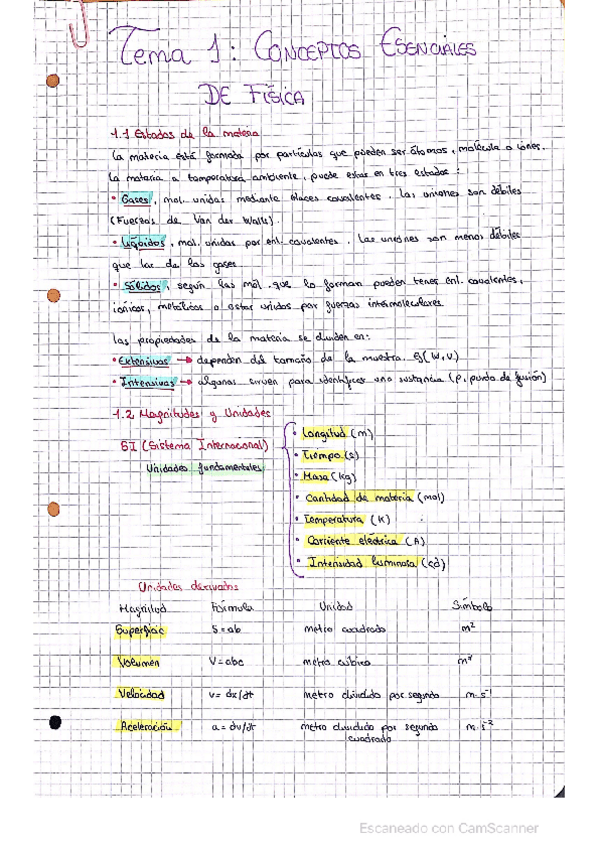 Tema 1: CONCEPTOS ESENCIALES
DE FÍSICA
1.1 Estados de la materia
La materia está formada por partículas que pueden ser átomos, molécula o iones.
La materia a temperatura ambiente, puede estar en tres estados:
• Gases, mol. unidas mediante enlaces covalentes. Las uniones son débiles
(Fuerzas de Van der Walls).
• Líquidos, mol. unidas por enl. covalentes. Las uniones son menos débiles
que las de los gases
• Sólidos, según las mol. que lo forman pueden tener enl. covalentes,
iónicos, metálicos o estar unidos por fuerzas intermoleculares.
Las propiedades de la materia se dividen en:
• Extensivas → dependen del tamaño de la muestra. Ej (W, V)
• Intensivas → algunas sirven para identificar una sustancia (ρ, punto de fusión)
1.2 Magnitudes y Unidades
SI (Sistema Internacional)
Unidades fundamentales
• Longitud (m)
• Tiempo (s)
• Masa (kg)
• Cantidad de materia (mol)
• Temperatura (K)
• Corriente eléctrica (A)
• Intensidad luminosa (cd)
Unidades derivadas
Magnitud Fórmula Unidad Símbolo
Superficie S = ab metro cuadrado m²
Volumen V = abc metro cúbico m³
Velocidad v = dx/dt metro dividido por segundo m·s⁻¹
Aceleración a = dv/dt metro dividido por segundo m·s⁻²
cuadrado
Escaneado con CamScanner